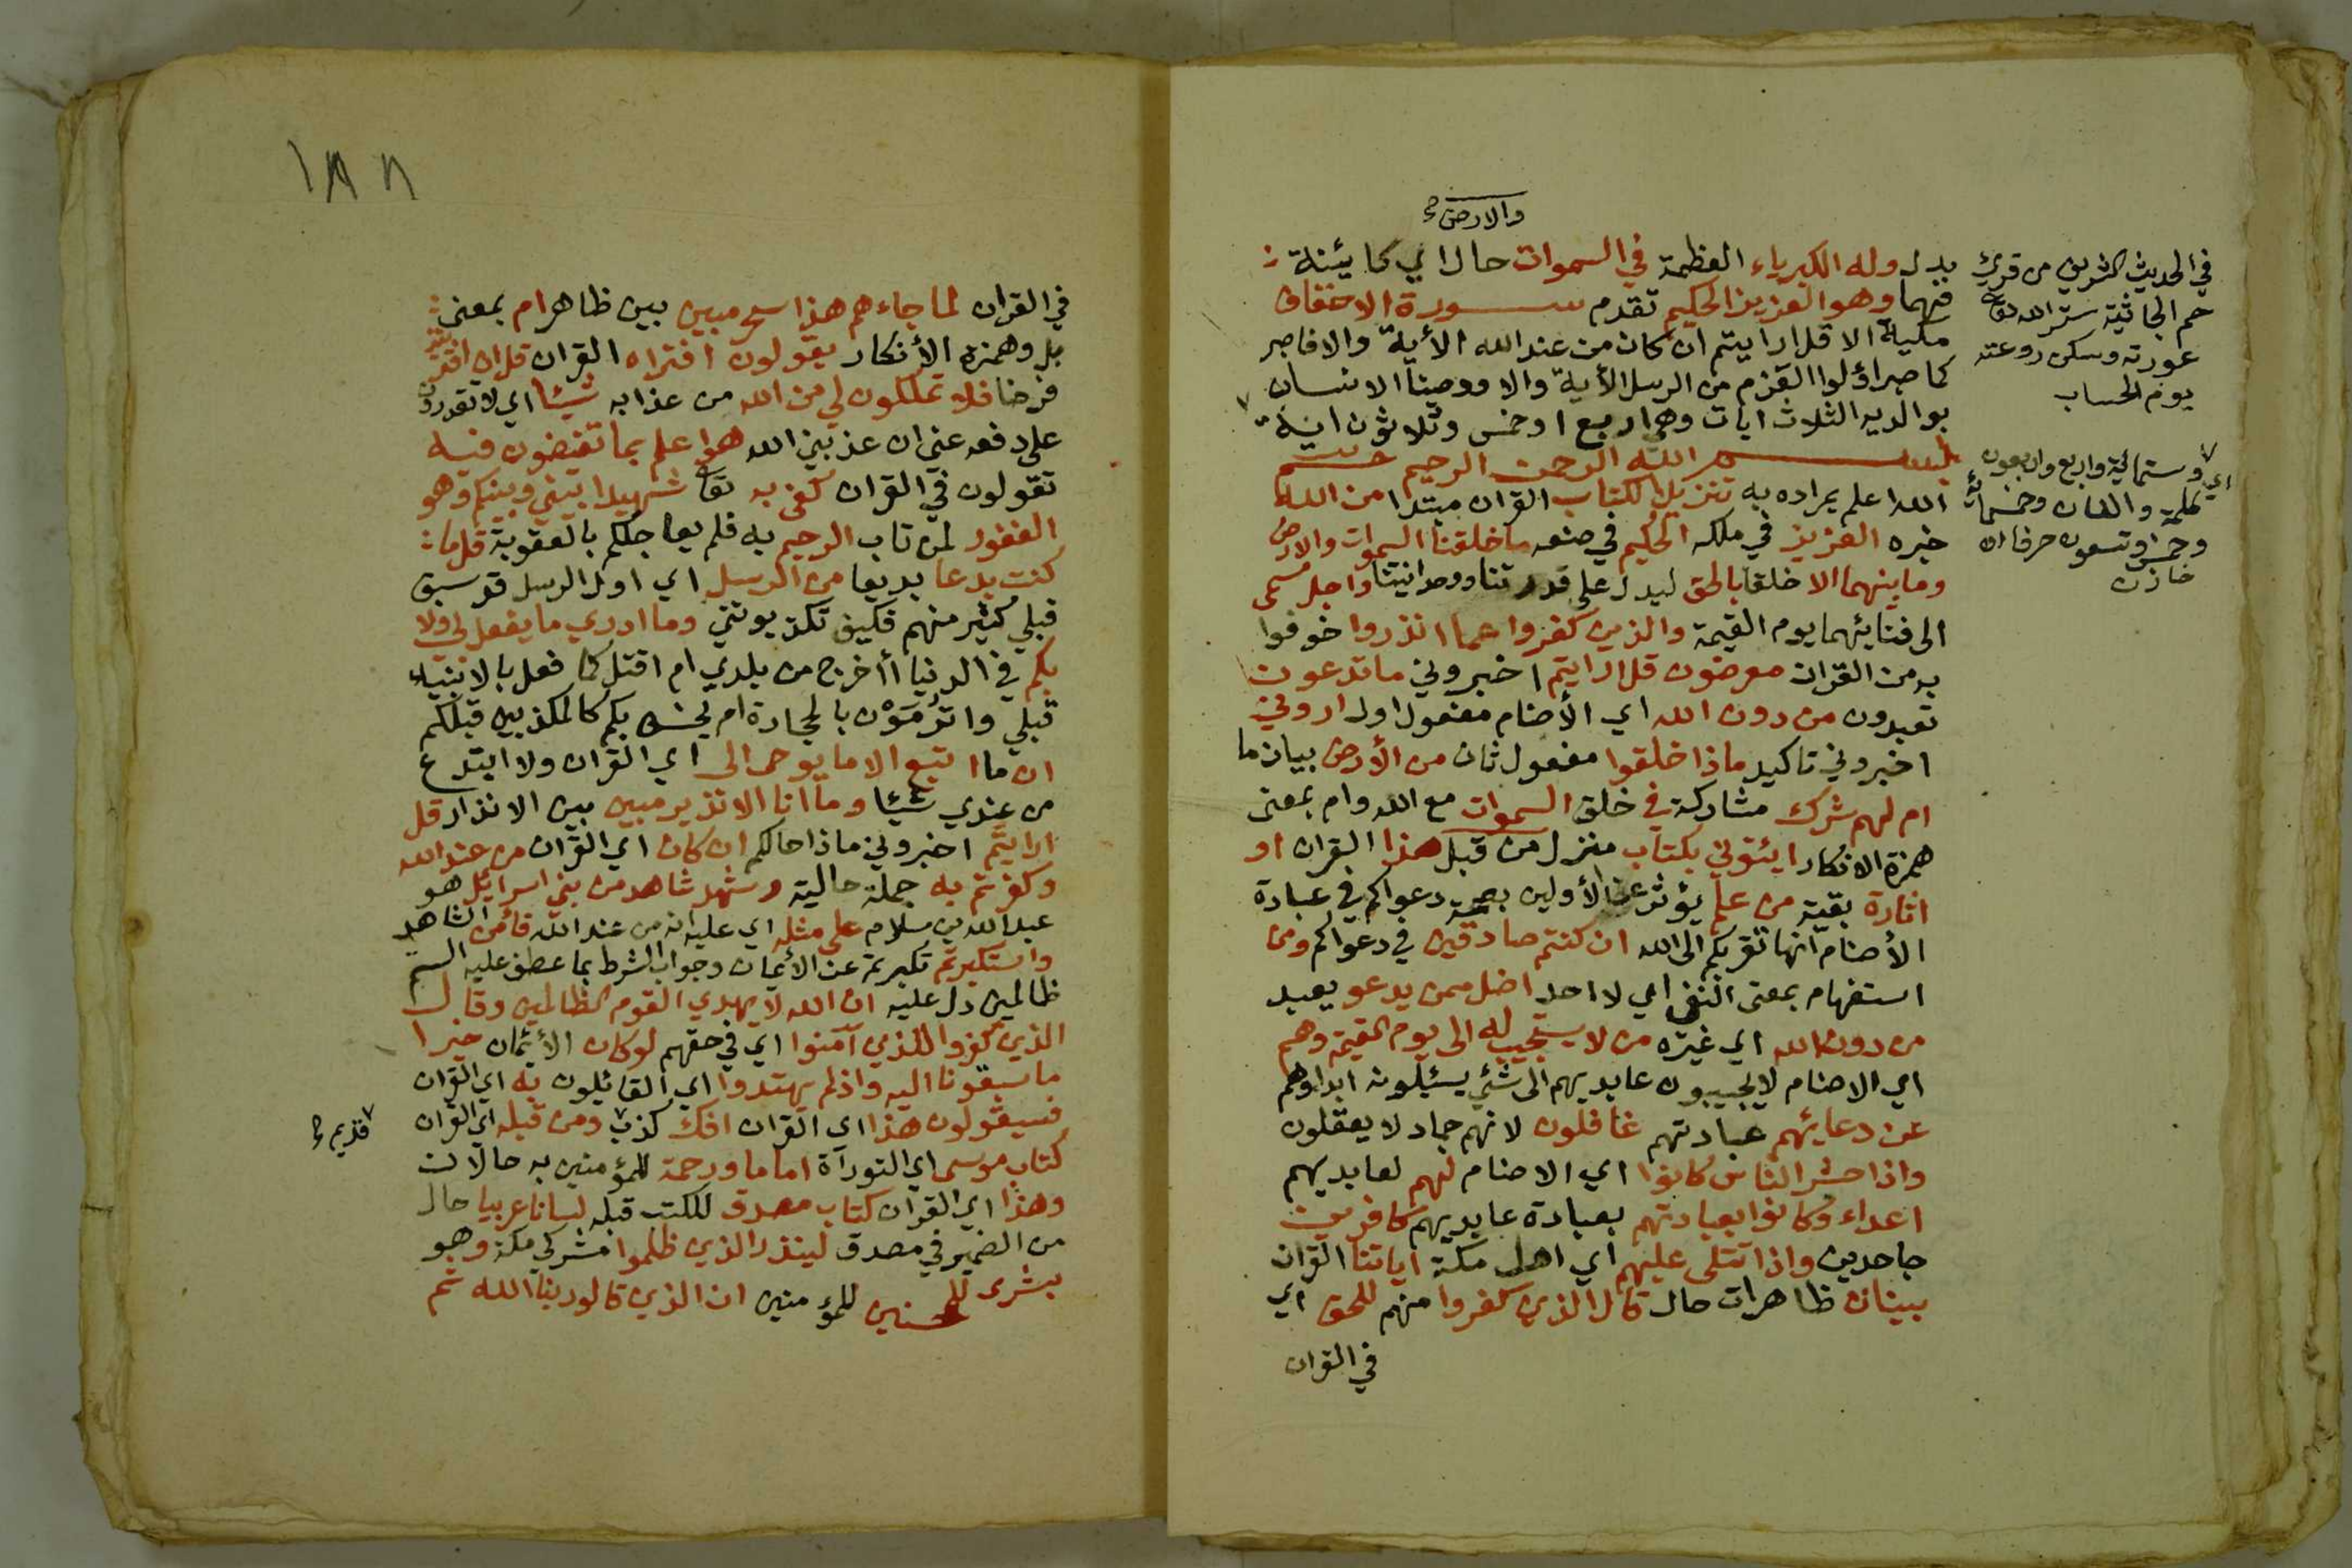 والارض صح
بدل وله الكبرياء العظمة في السموات حال اي كائنة
فيهما وهو العزيز الحكيم تقدم سورة الاحقاف
مكية الا قل ارايتم ان كان من عند الله الأية والا فاصبر
كما صبر اولوا العزم من الرسل الأية والا ووصينا الانسان
بوالديه الثلاث ايات وهي اربع او خمس وثلاثون اية
بسم الله الرحمن الرحيم حم
الله اعلم بمراده به تنزيل الكتاب القران مبتدا من الله
خبره العزيز في ملكه الحكيم في صنعه ما خلقنا السموات والارض
وما بينهما الا خلقا بالحق ليدل على قدرتنا ووحدانيتنا واجل مسمى
الى فنائهما يوم القيمة والذين كفروا عما انذروا خوفوا
به من القران معرضون قل ارايتم اخبروني ما تدعون
تعبدون من دون الله اي الأصنام مفعول اول اروني
اخبروني تاكيد ماذا خلقوا مفعول ثان من الأرض بيان ما
ام لهم شرك مشاركة في خلق السموات مع الله وام بمعنى
همزة الانكار ايئتوني بكتاب منزل من قبل هذا القران او
اثارة بقية من علم يؤثر عن الأولين بصحة دعواكم في عبادة
الأصنام انها تقربكم الى الله ان كنتم صادقين في دعواكم ومن
استفهام بمعنى النفي اي لا احد اضل ممن يدعو يعبد
من دون الله اي غيره من لا يستجيب له الى يوم القيمة وهم
اي الاصنام لا يجيبون عابديهم الى شئ يسئلونه ابدا وهم
عن دعائهم عبادتهم غافلون لانهم جماد لا يعقلون
واذا حشر الناس كانوا اي الاصنام لهم لعابديهم
اعداء وكانوا بعبادتهم بعبادة عابديهم كافرين
جاحدين واذا تتلى عليهم اي اهل مكة اياتنا القران
بينات ظاهرات حال قال الذين كفروا منهم للحق اي
في القران
في الحديث الشريف من قرئ
حم الجاثية ستر الله تعا
عورته وسكن روعته
يوم الحساب
وستمائة واربع واربعون
كلمة والفان وخمسمائة
وخمس وتسعون حرفا اه
خازن
١٨٨
في القران لما جاءهم هذا سحر مبين بين ظاهر ام بمعنى
بل وهمزة الأنكار يقولون افتراه القران قل ان افتريته
فرضا فلا تملكون لي من الله من عذابه شيئا اي لا تقدرون
على دفعه عني ان عذبني الله هو اعلم بما تفيضون فيه
تقولون في القران كفى به تعا شهيدا بيني وبينكم وهو
الغفور لمن تاب الرحيم به فلم يعاجلكم بالعقوبة قل ما
كنت بدعا بديعا من الرسل اي اول الرسل قد سبق
قبلي كثير منهم فكيف تكذبونني وما ادري ما يفعل بي ولا
بكم في الدنيا أأخرج من بلدي ام اقتل كما فعل بالانبياء
قبلي واترمون بالحجارة ام يخسف بكم كالمكذبين قبلكم
ان ما اتبع الا ما يوحى الى اي القران ولا ابتدع
من عندي شيئا وما انا الا نذير مبين بين الانذار قل
ارايتم اخبروني ماذا حالكم ان كان اي القران من عند الله
وكفرتم به جملة حالية وشهد شاهد من بني اسرايل هو
عبد الله بن سلام على مثله اي عليه انه من عند الله فامن الشاهد
واستكبرتم تكبرتم عن الأيمان وجواب الشرط بما عطف عليه الستم
ظالمين دل عليه ان الله لا يهدي القوم الظالمين وقال
الذين كفروا للذين آمنوا اي في حقهم لو كان الأيمان خيرا
ما سبقونا اليه واذ لم يهتدوا اي القائلون به اي القران
فسيقولون هذا اى القران افك كذب ومن قبله اي القران
قديم صح
كتاب موسى اي التوراة اماما ورحمة للمؤمنين به حالان
وهذا اي القران كتاب مصدق للكتب قبله لسانا عربيا حال
من الضمير في مصدق لينذر الذين ظلموا مشركي مكة وهو
بشرى للمحسنين للمؤمنين ان الذين قالو ربنا الله ثم